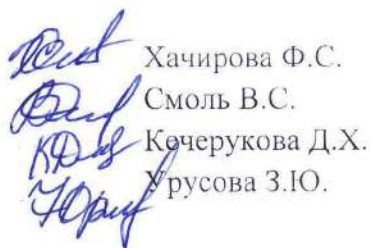 Хачирова Ф.С.
Смоль В.С.
Кечерукова Д.Х.
Урусова З.Ю.